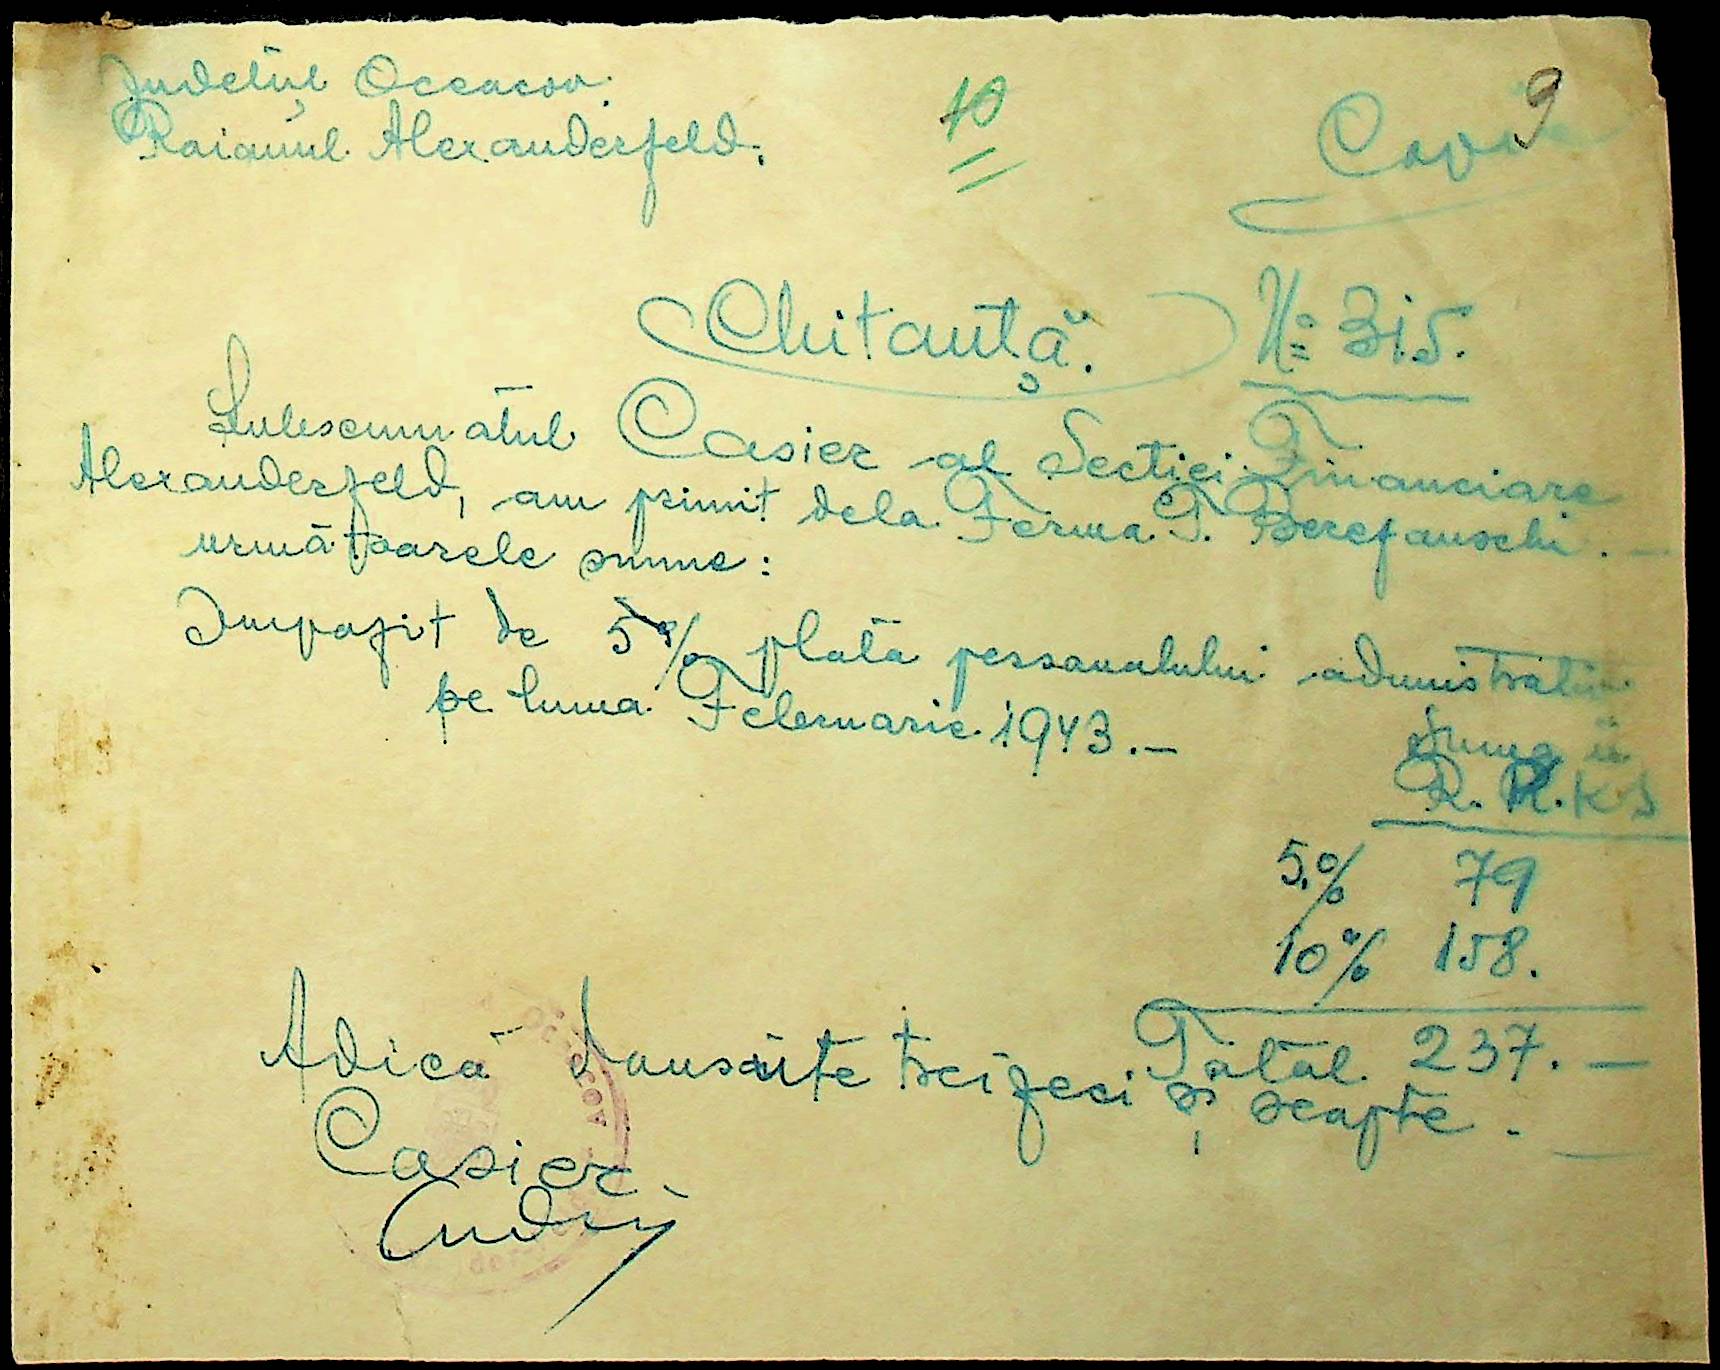 Judetul Oceacov.
Raionul Alexanderfeld.
10
9
Copie
Chitanță. No 315.
Subsemnatul Casier al Secției Financiare
Alexanderfeld, am primit dela Ferma T. Berezanschi. —
următoarele sume:
Impozit de 5% plata personalului administrativ
pe luna Februarie 1943. —
Suma în
R.K.K.S
5% 79
10% 158.
Total 237. —
Adică douasute treizeci și șeapte. —
Casier